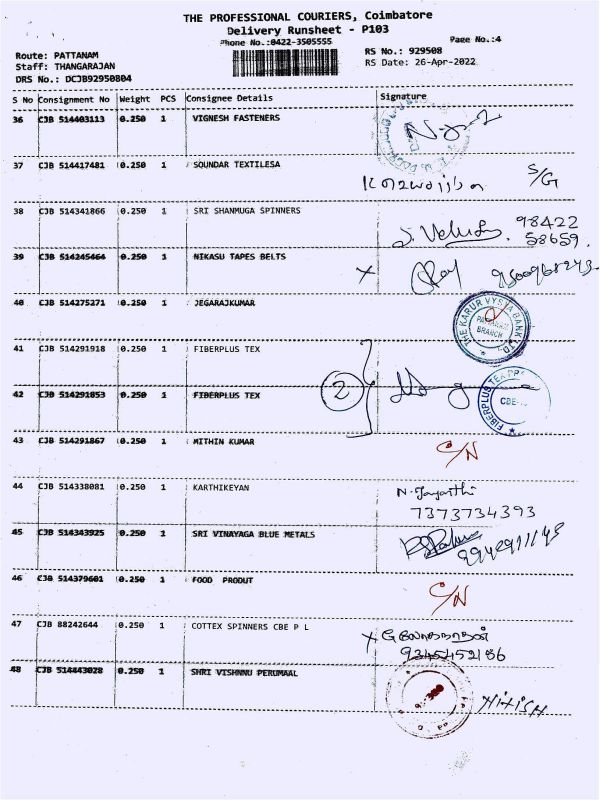 THE PROFESSIONAL COURIERS, Coimbatore
Delivery Runsheet - P103
Phone No.:0422-3505555
Page No.:4
Route: PATTANAM
RS No.: 929508
Staff: THANGARAJAN
RS Date: 26-Apr-2022
DRS No.: DCJB92950804
S No Consignment No Weight PCS Consignee Details Signature
36 CJB 514403113 0.250 1 VIGNESH FASTENERS
37 CJB 514417481 0.250 1 SOUNDAR TEXTILESA
S/G
38 CJB 514341866 0.250 1 SRI SHANMUGA SPINNERS
98422
58659
39 CJB 514245464 0.250 1 NIKASU TAPES BELTS
X
40 CJB 514275271 0.250 1 JEGARAJKUMAR
THE KARUR VYSYA BANK LTD
BRANCH
41 CJB 514291918 0.250 1 FIBERPLUS TEX
2
42 CJB 514291853 0.250 1 FIBERPLUS TEX
FIBERPLUS TEX
CBE
43 CJB 514291867 0.250 1 MITHIN KUMAR
C/N
44 CJB 514338081 0.250 1 KARTHIKEYAN
N. Jayanthi
7373734393
45 CJB 514343925 0.250 1 SRI VINAYAGA BLUE METALS
46 CJB 514379601 0.250 1 FOOD PRODUT
C/N
47 CJB 88242644 0.250 1 COTTEX SPINNERS CBE P L
X
9345452186
48 CJB 514443028 0.250 1 SHRI VISHNNU PERUMAAL
NITISH